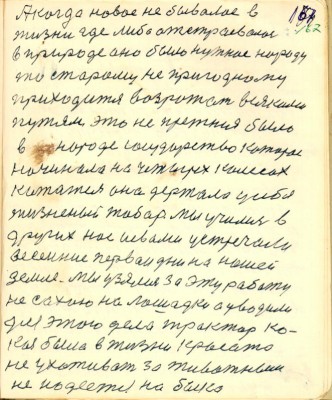 А когда новое не бывалое в
жизни где либо отстраевалось
в природе оно было нужное народу
то старому не пригодному
приходится возротат всякими
путям это не прежния было
в народе государство которое
начинала на четырех колесах
кататся она держала у себя
жизненый товар мы училис в
других нас словами устречали
весение первои дни на нашей
земле. Мы узялис за эту работу
не сахою на лошадки а уводили
для этого дела трактар ко-
кая была в жизни красата
не ухаживат за животными
не надеется на быка